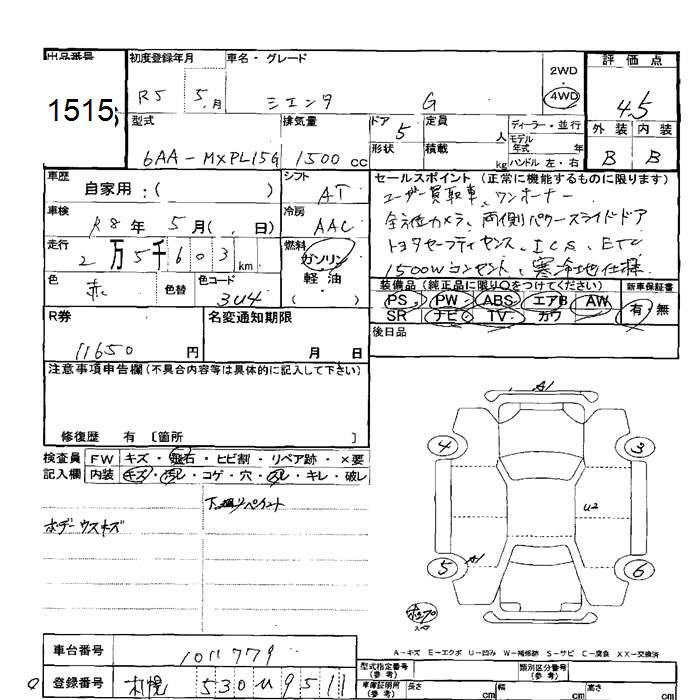 出品番号 初度登録年月 車名・グレード 評価点
1515
R5 5月 シエンタ G 2WD 4WD 4.5
型式 排気量 ドア 5 定員 人 ディーラー・並行 外装 内装
形状 積載 kg モデル年式 年
6AA-MXPL15G 1500cc ハンドル 左・右 B B
車歴 自家用:( ) シフト AT セールスポイント (正常に機能するものに限ります)
ユーザー買取車、ワンオーナー
車検 R8年 5月( 、 日) 冷房 AAC 全方位カメラ、両側パワースライドドア
走行 2万5千603km 燃料 ガソリン トヨタセーフティセンス、ICS、ETC
軽油 1500Wコンセント、寒冷地仕様
( )
色 赤 色替 色コード 3U4 装備品 (純正品に限り○をつけてください) 新車保証書
PS PW ABS エアB AW 有・無
SR ナビ TV カワ
R券 11650円 名変通知期限 月 日 後日品
注意事項申告欄 (不具合内容等は具体的に記入して下さい)
修復歴 有 〔箇所 〕
検査員 FW キズ・飛石・ヒビ割・リペア跡・×要
記入欄 内装 キズ・汚レ・コゲ・穴・スレ・キレ・破レ
ボデーウスキズ
A1
4 3
U2
5 A1 6
A-キズ E-エクボ U-凹み W-補修跡 S-サビ C-腐食 XX-交換済
車台番号 1011779 型式指定番号 (参考) 類別区分番号 (参考)
登録番号 札幌 530 9511 車庫証明用 (参考) 長さ cm 幅 cm 高さ cm